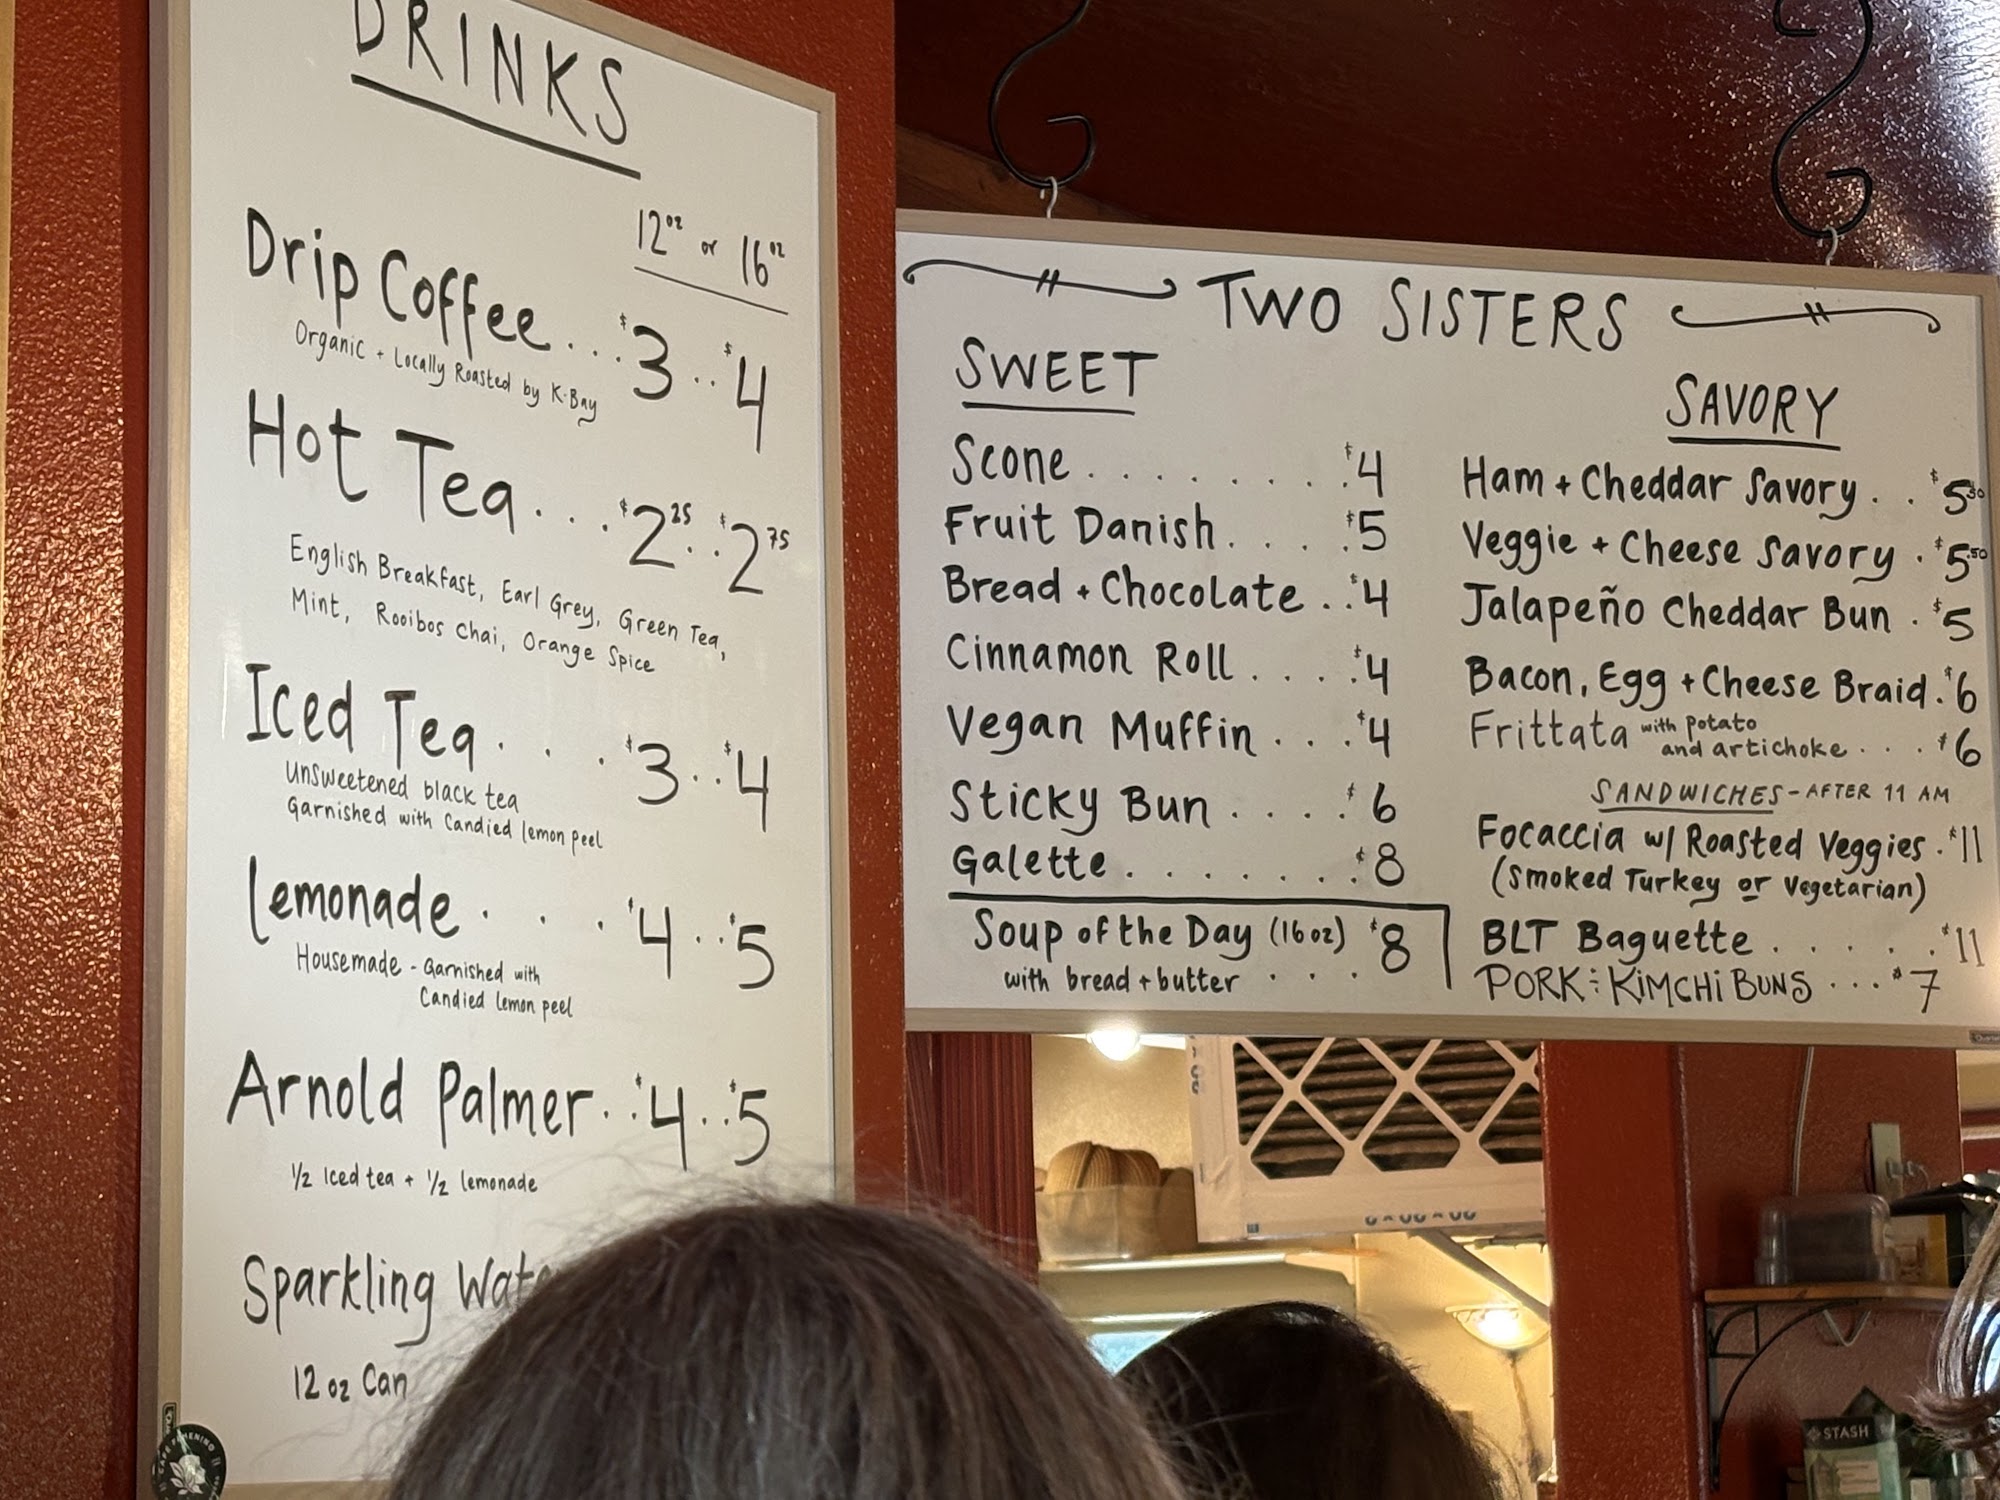 DRINKS
12oz or 16oz
Drip Coffee...$3..$4
Organic + Locally Roasted by K-Bay
Hot Tea...$2 25..$2 75
English Breakfast, Earl Grey, Green Tea,
Mint, Rooibos Chai, Orange Spice
Iced Tea....$3..$4
Unsweetened black tea
Garnished with Candied lemon peel
Lemonade...$4..$5
Housemade - Garnished with
Candied lemon peel
Arnold Palmer..$4..$5
1/2 Iced tea + 1/2 lemonade
Sparkling
12 oz Can
TWO SISTERS
SWEET
Scone........$4
Fruit Danish....$5
Bread + Chocolate..$4
Cinnamon Roll....$4
Vegan Muffin...$4
Sticky Bun....$6
Galette.......$8
Soup of the Day (16oz) $8
with bread + butter...
SAVORY
Ham + Cheddar Savory..$5.50
Veggie + Cheese Savory.$5.50
Jalapeño Cheddar Bun.$5
Bacon, Egg + Cheese Braid.$6
Frittata with potato
and artichoke...$6
SANDWICHES - AFTER 11 AM
Focaccia w/ Roasted Veggies.$11
(Smoked Turkey or Vegetarian)
BLT Baguette.....$11
PORK + KIMCHI BUNS...$7
STASH